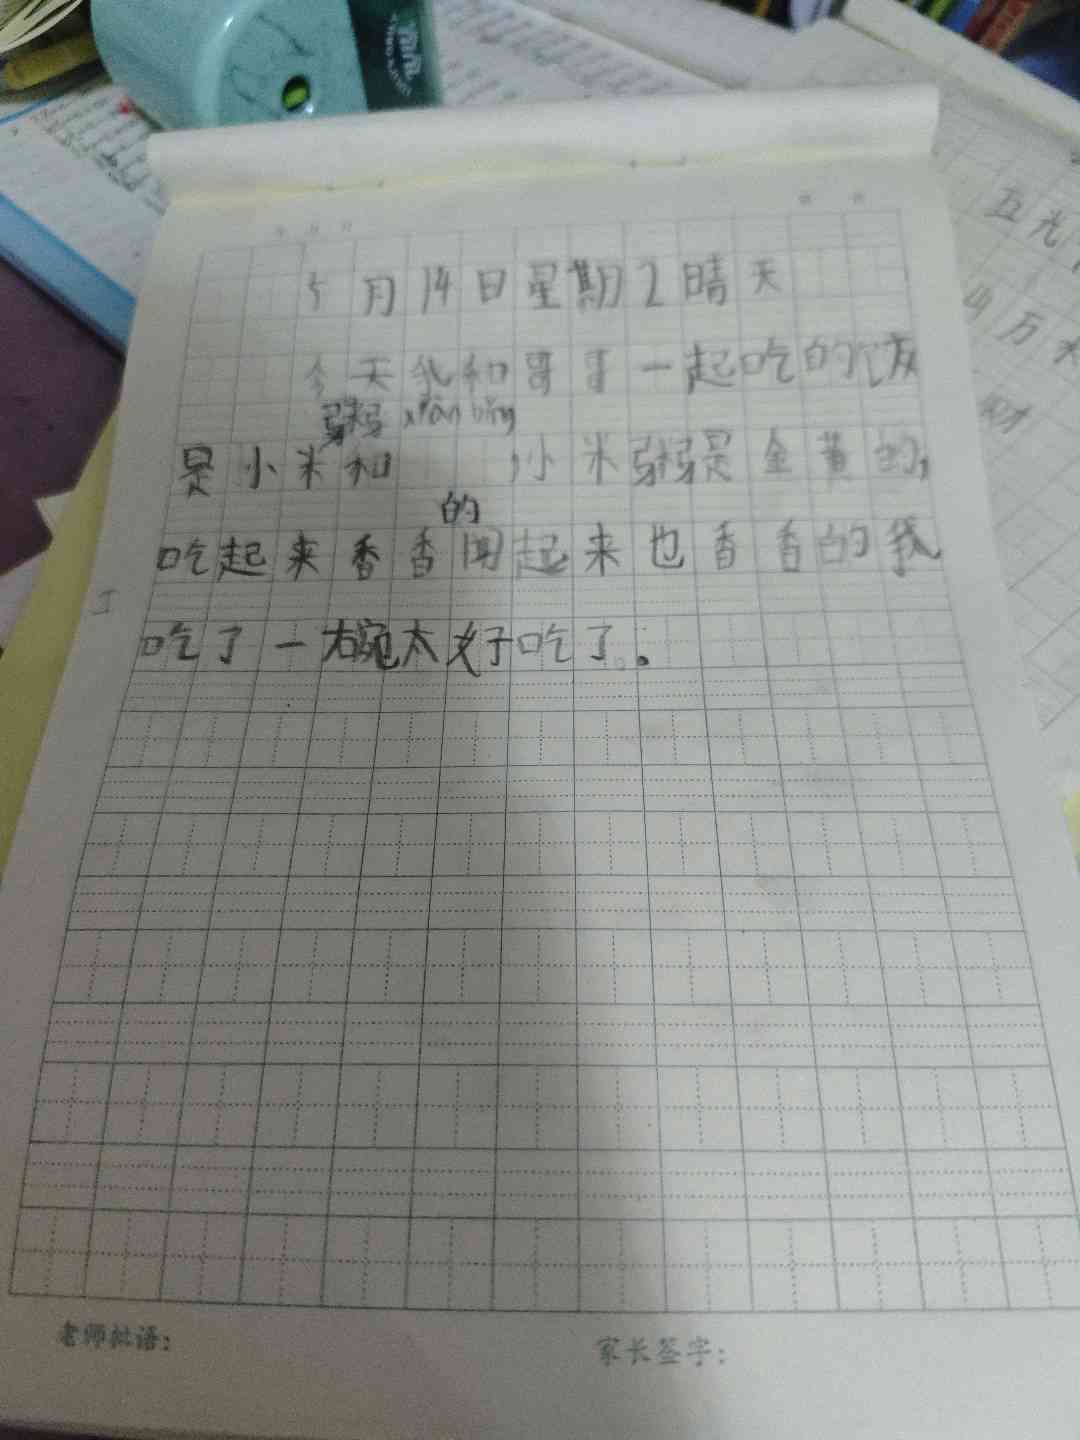 5月14日星期2晴天
今天我和哥哥一起吃的饭
粥 xiàn bǐng
是小米和 ,小米粥是金黄的,
的
吃起来香香闻起来也香香的我
吃了一大碗太好吃了。
老师批语:
家长签字:
五光
4万